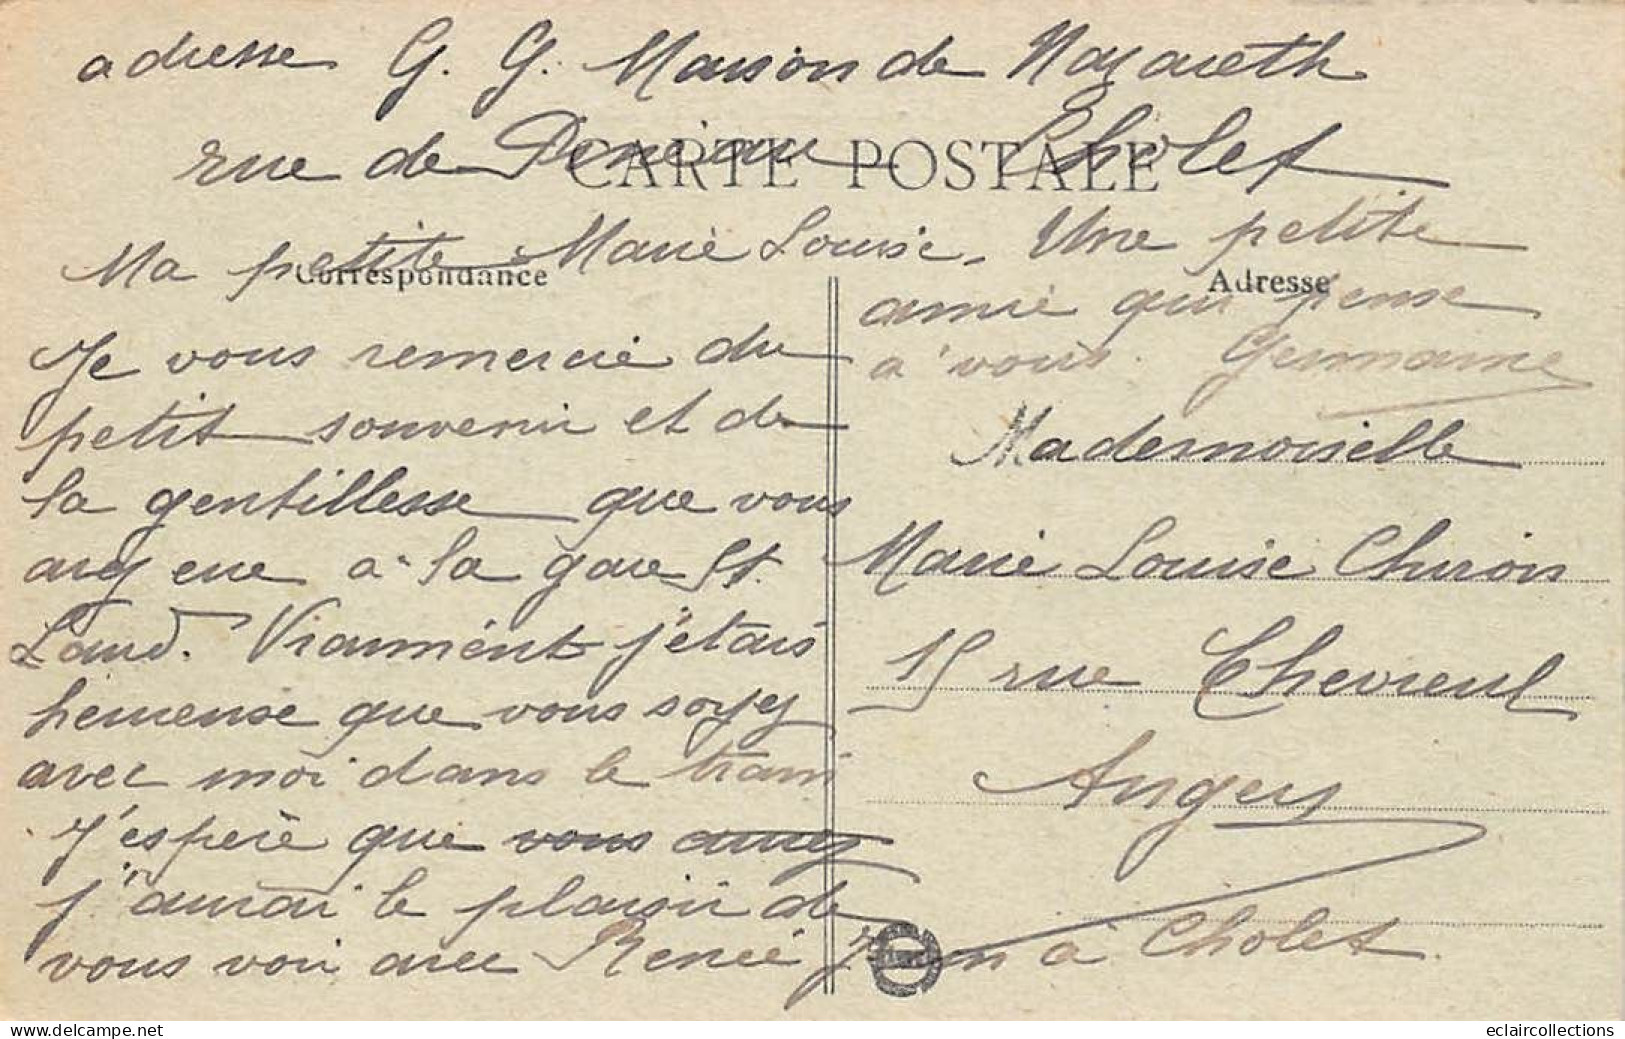 adresse G. G. Maison de Nazareth
rue de Cholet
CARTE POSTALE
Ma petite Marie Louise.
Correspondance
Je vous remercie du
petit souvenir et de
la gentillesse que vous
avez eue a la gare St.
Laud. Vraiment j'étais
heureuse que vous soyez
avec moi dans le train
J'espère que vous avez
j'aurai le plaisir de
vous voir avec Renée à Cholet.
Une petite
Adresse
amie qui pense
a' vous. Germaine
Mademoiselle
Marie Louise
15 rue Chevreul
Angers
eclaircollections
www.delcampe.net